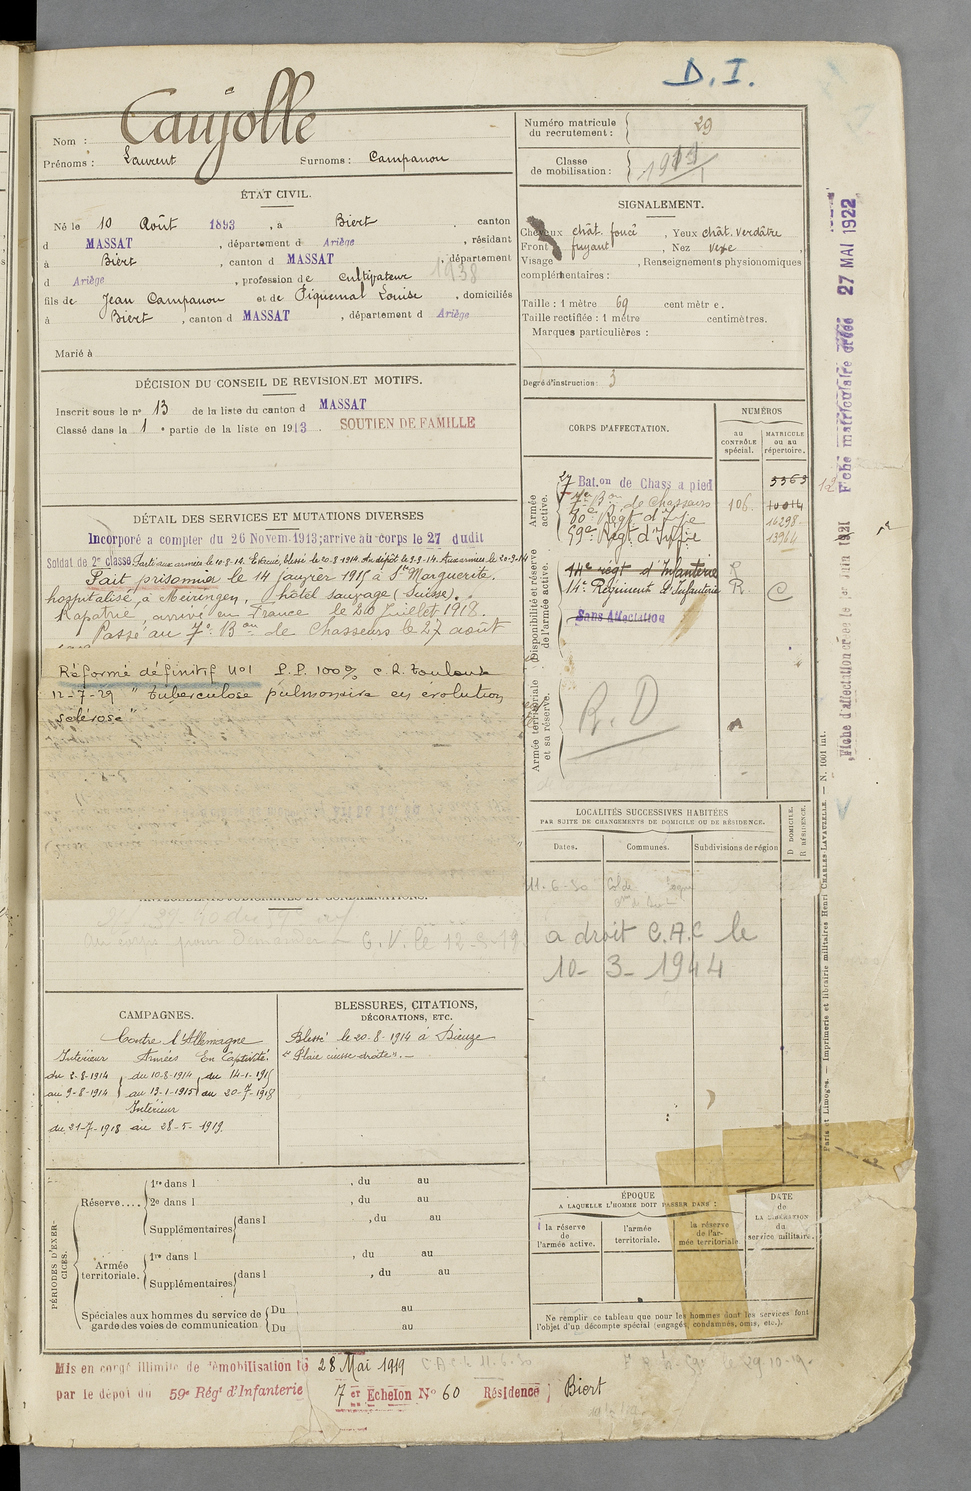 D. I.
Caujolle
Nom :
Prénoms : Laurent Surnoms : Campanou
Numéro matricule
du recrutement : 29
Classe
de mobilisation :
ÉTAT CIVIL.
Né le 10 Août 1893, à Biert canton
d MASSAT, département d Ariège, résidant
à Biert, canton d MASSAT, département
d Ariège, profession de cultivateur
1938
fils de Jean Campanou et de Piquemal Louise, domiciliés
à Biert, canton d MASSAT, département d Ariège
Marié à
SIGNALEMENT.
Cheveux chât. foncé, Yeux chât. verdâtre
Front fuyant, Nez vexe,
Visage , Renseignements physionomiques
complémentaires :
Taille : 1 mètre 69 centimètre.
Taille rectifiée : 1 mètre centimètres.
Marques particulières :
Degré d'instruction : 3
DÉCISION DU CONSEIL DE REVISION ET MOTIFS.
Inscrit sous le n° 13 de la liste du canton d MASSAT
Classé dans la 1 e partie de la liste en 1913. SOUTIEN DE FAMILLE
DÉTAIL DES SERVICES ET MUTATIONS DIVERSES
Incorporé a compter du 26 Novem. 1913; arrive au corps le 27 dudit
Soldat de 2e classe Parti aux armées le 10.8.14. Evacué, blessé le 20.8.1914. Au dépôt le 9.9.14. Aux armées le 20.9.14
Fait prisonnier le 14 janvier 1915 à Ste Marguerite.
hospitalisé à Meiringen, hôtel sauvage (Suisse).
Rapatrié, arrivé en France le 20 Juillet 1918.
Passé au 7e Bon de Chasseurs le 27 août
Réformé définitif N°1 P.P. 100% C.R. Toulouse
12-7-29 "Tuberculose pulmonaire en évolution
sclérose"
CORPS D'AFFECTATION.
NUMÉROS
au
CONTRÔLE
spécial.
MATRICULE
ou au
répertoire.
Armée
active.
27 Bat.on de Chass à pied 5363
7e Bon de Chasseurs 106
80e Régt d'Inftie 16298
59e Régt d'Inftie 13964
Disponibilité et réserve
de l'armée active.
14e régt d'Infanterie
14e Régiment d'Infanterie R.
Sans Affectation
Armée territoriale
et sa réserve.
R. D
LOCALITÉS SUCCESSIVES HABITÉES
PAR SUITE DE CHANGEMENTS DE DOMICILE OU DE RÉSIDENCE.
Dates. Communes. Subdivisions de région
D DOMICILE.
R RÉSIDENCE.
11-6-30
a droit C.A.C le
10-3-1944
ANTÉCÉDENTS JUDICIAIRES ET CONDAMNATIONS.
CAMPAGNES.
Contre l'Allemagne
Intérieur Armées En Captivité.
du 2-8-1914 du 10-8-1914 du 14-1-1915
au 9-8-1914 au 13-1-1915 au 20-7-1918
Intérieur
du 21-7-1918 au 28-5-1919.
BLESSURES, CITATIONS,
DÉCORATIONS, ETC.
Blessé le 20.8.1914 à Dieuze
"Plaie cuisse droite".
PÉRIODES D'EXERCICES.
Réserve....
1re dans l , du au
2e dans l , du au
Supplémentaires dans l , du au
Armée
territoriale.
1re dans l , du au
Supplémentaires dans l , du au
Spéciales aux hommes du service de
garde des voies de communication
Du au
Du au
ÉPOQUE
A LAQUELLE L'HOMME DOIT PASSER DANS :
la réserve
de
l'armée active.
l'armée
territoriale.
la réserve
de l'ar-
mée territoriale.
DATE
de
LA LIBÉRATION
du
service militaire.
Ne remplir ce tableau que pour les hommes dont les services font
l'objet d'un décompte spécial (engagés, condamnés, omis, etc.).
Mis en congé illimité de démobilisation le 28 Mai 1919
par le dépôt du 59e Régt d'Infanterie 7er Echelon N° 60 Résidence ; Biert
Fiche matriculaire créée 27 MAI 1922
Fiche d'affectation créée le 1er Juin 1921
Paris et Limoges. — Imprimerie et librairie militaires Henri CHARLES-LAVAUZELLE. — N. 1001 int.